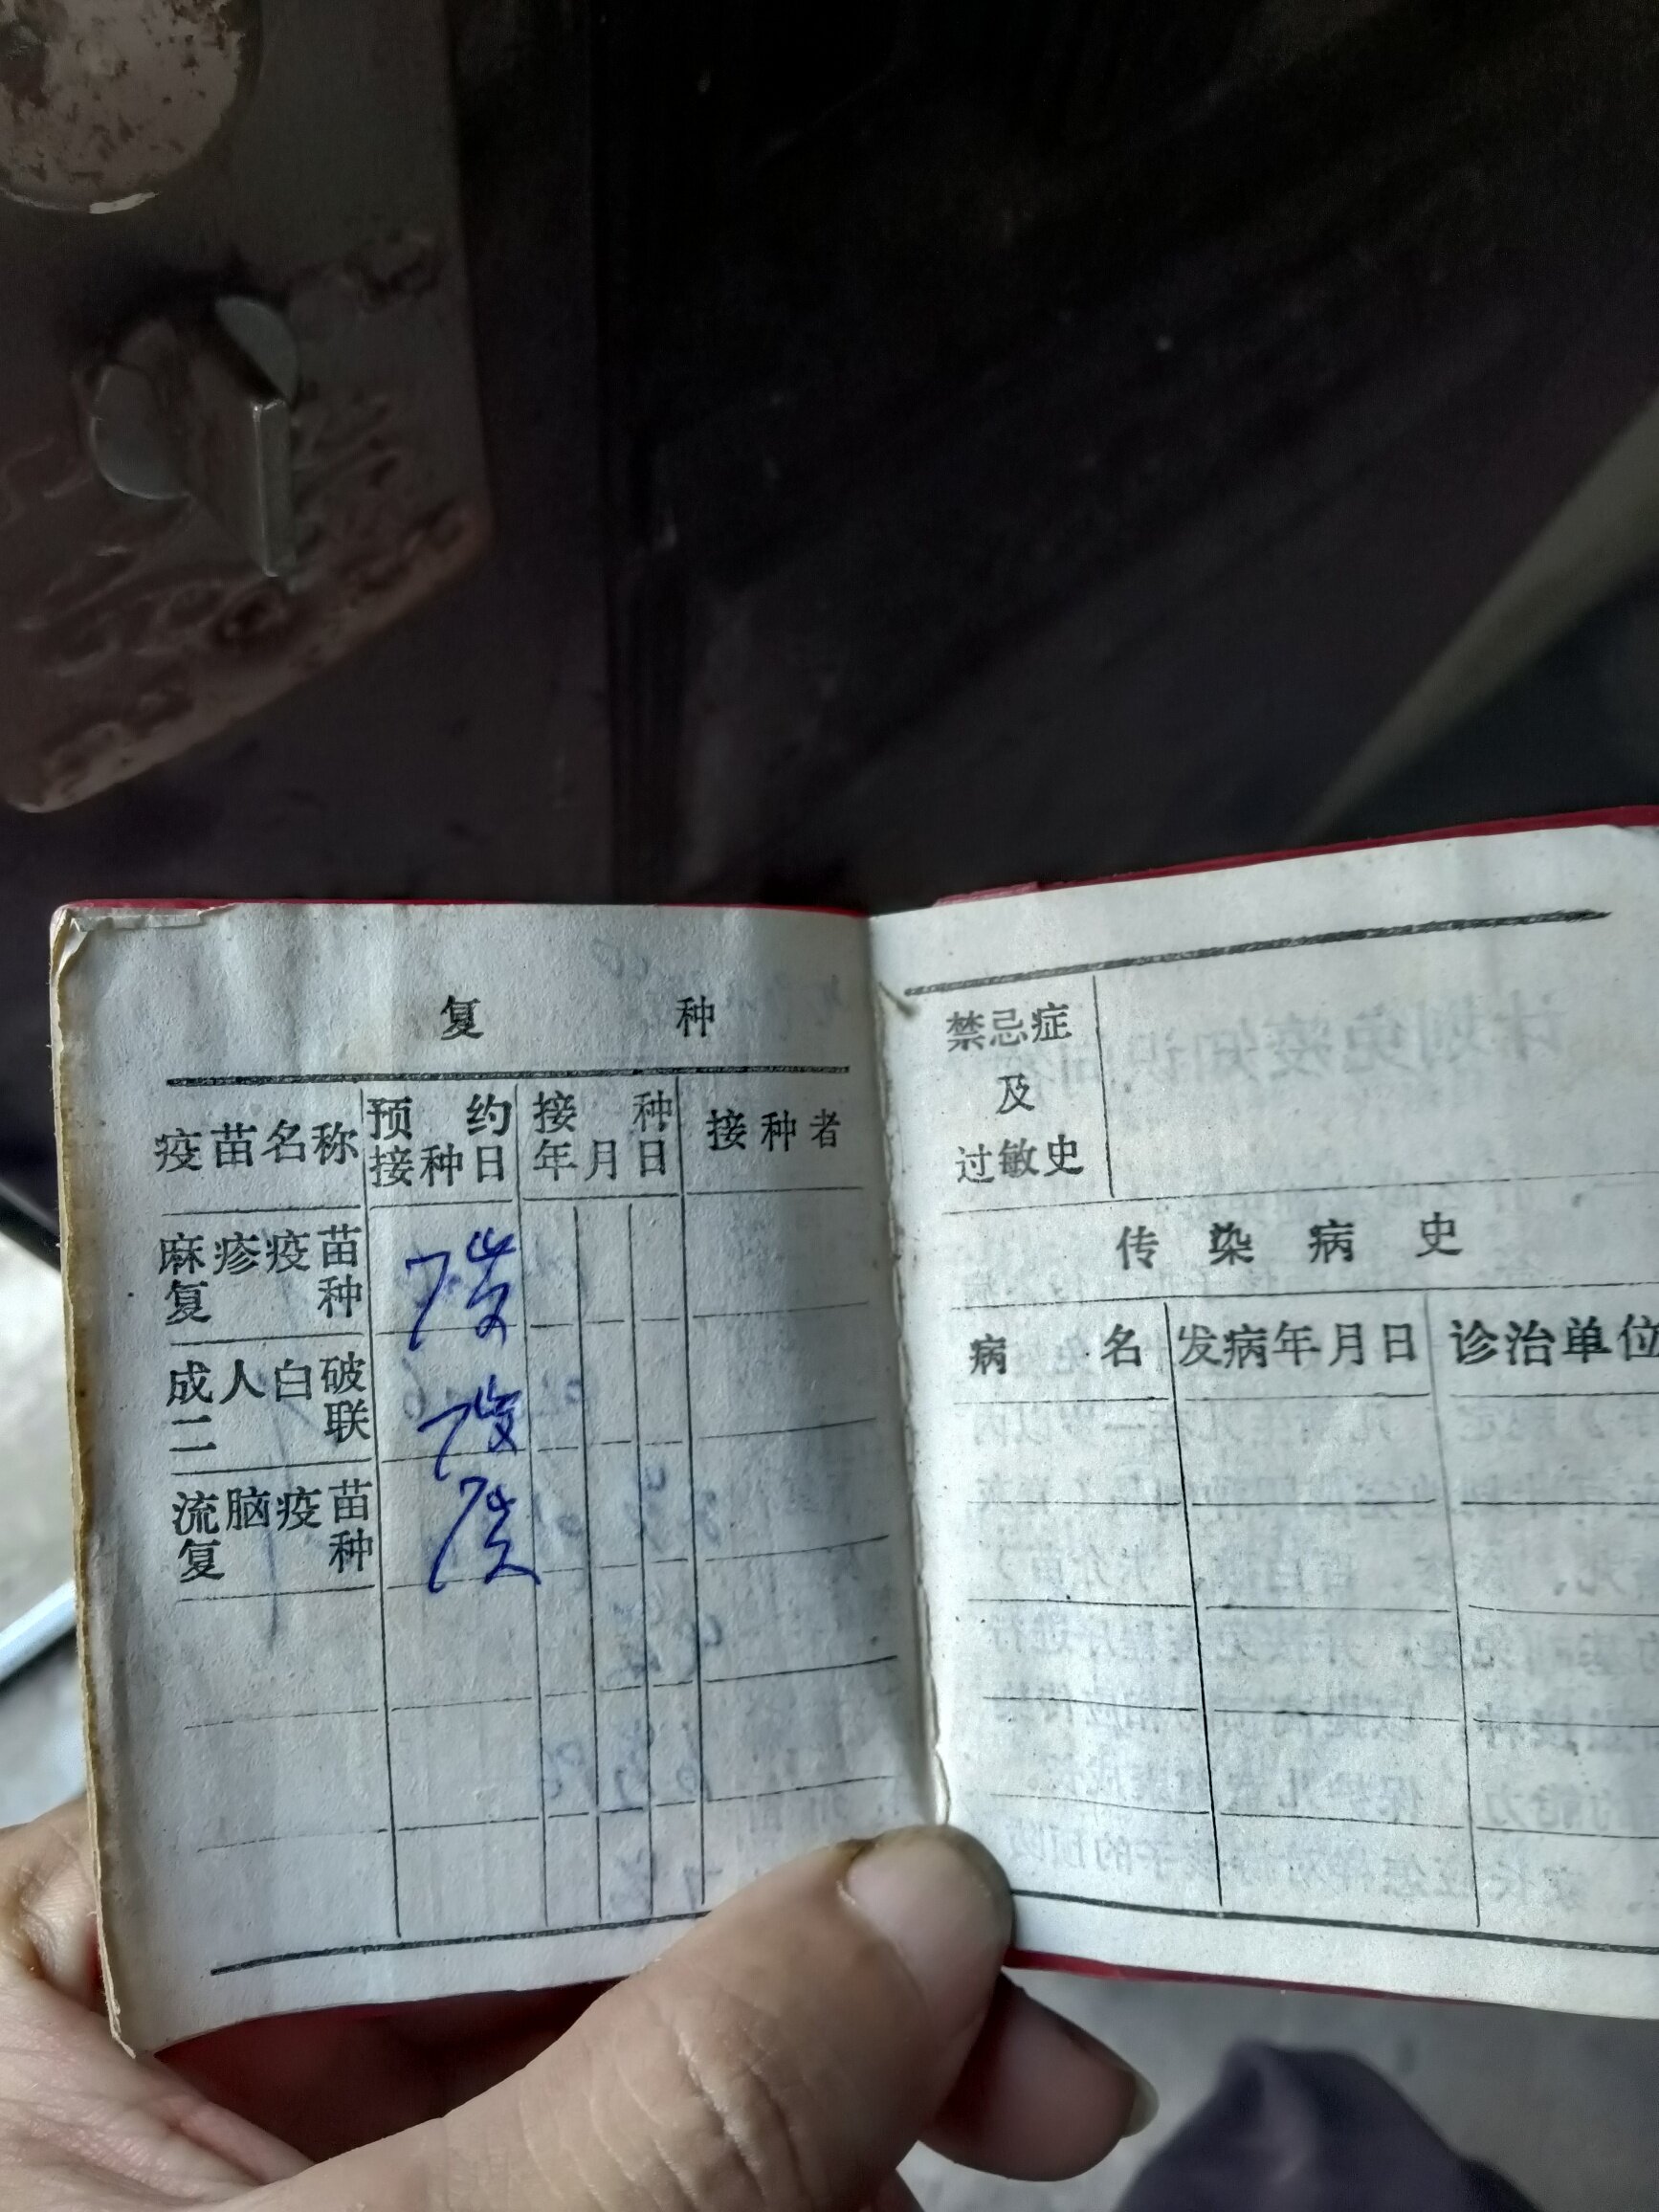 复 种
疫苗名称 预约接种日 接种年月日 接种者
麻疹疫苗复种 7岁
成人白破二联 7岁
流脑疫苗复种 7岁
禁忌症
及
过敏史
传染病史
病名 发病年月日 诊治单位